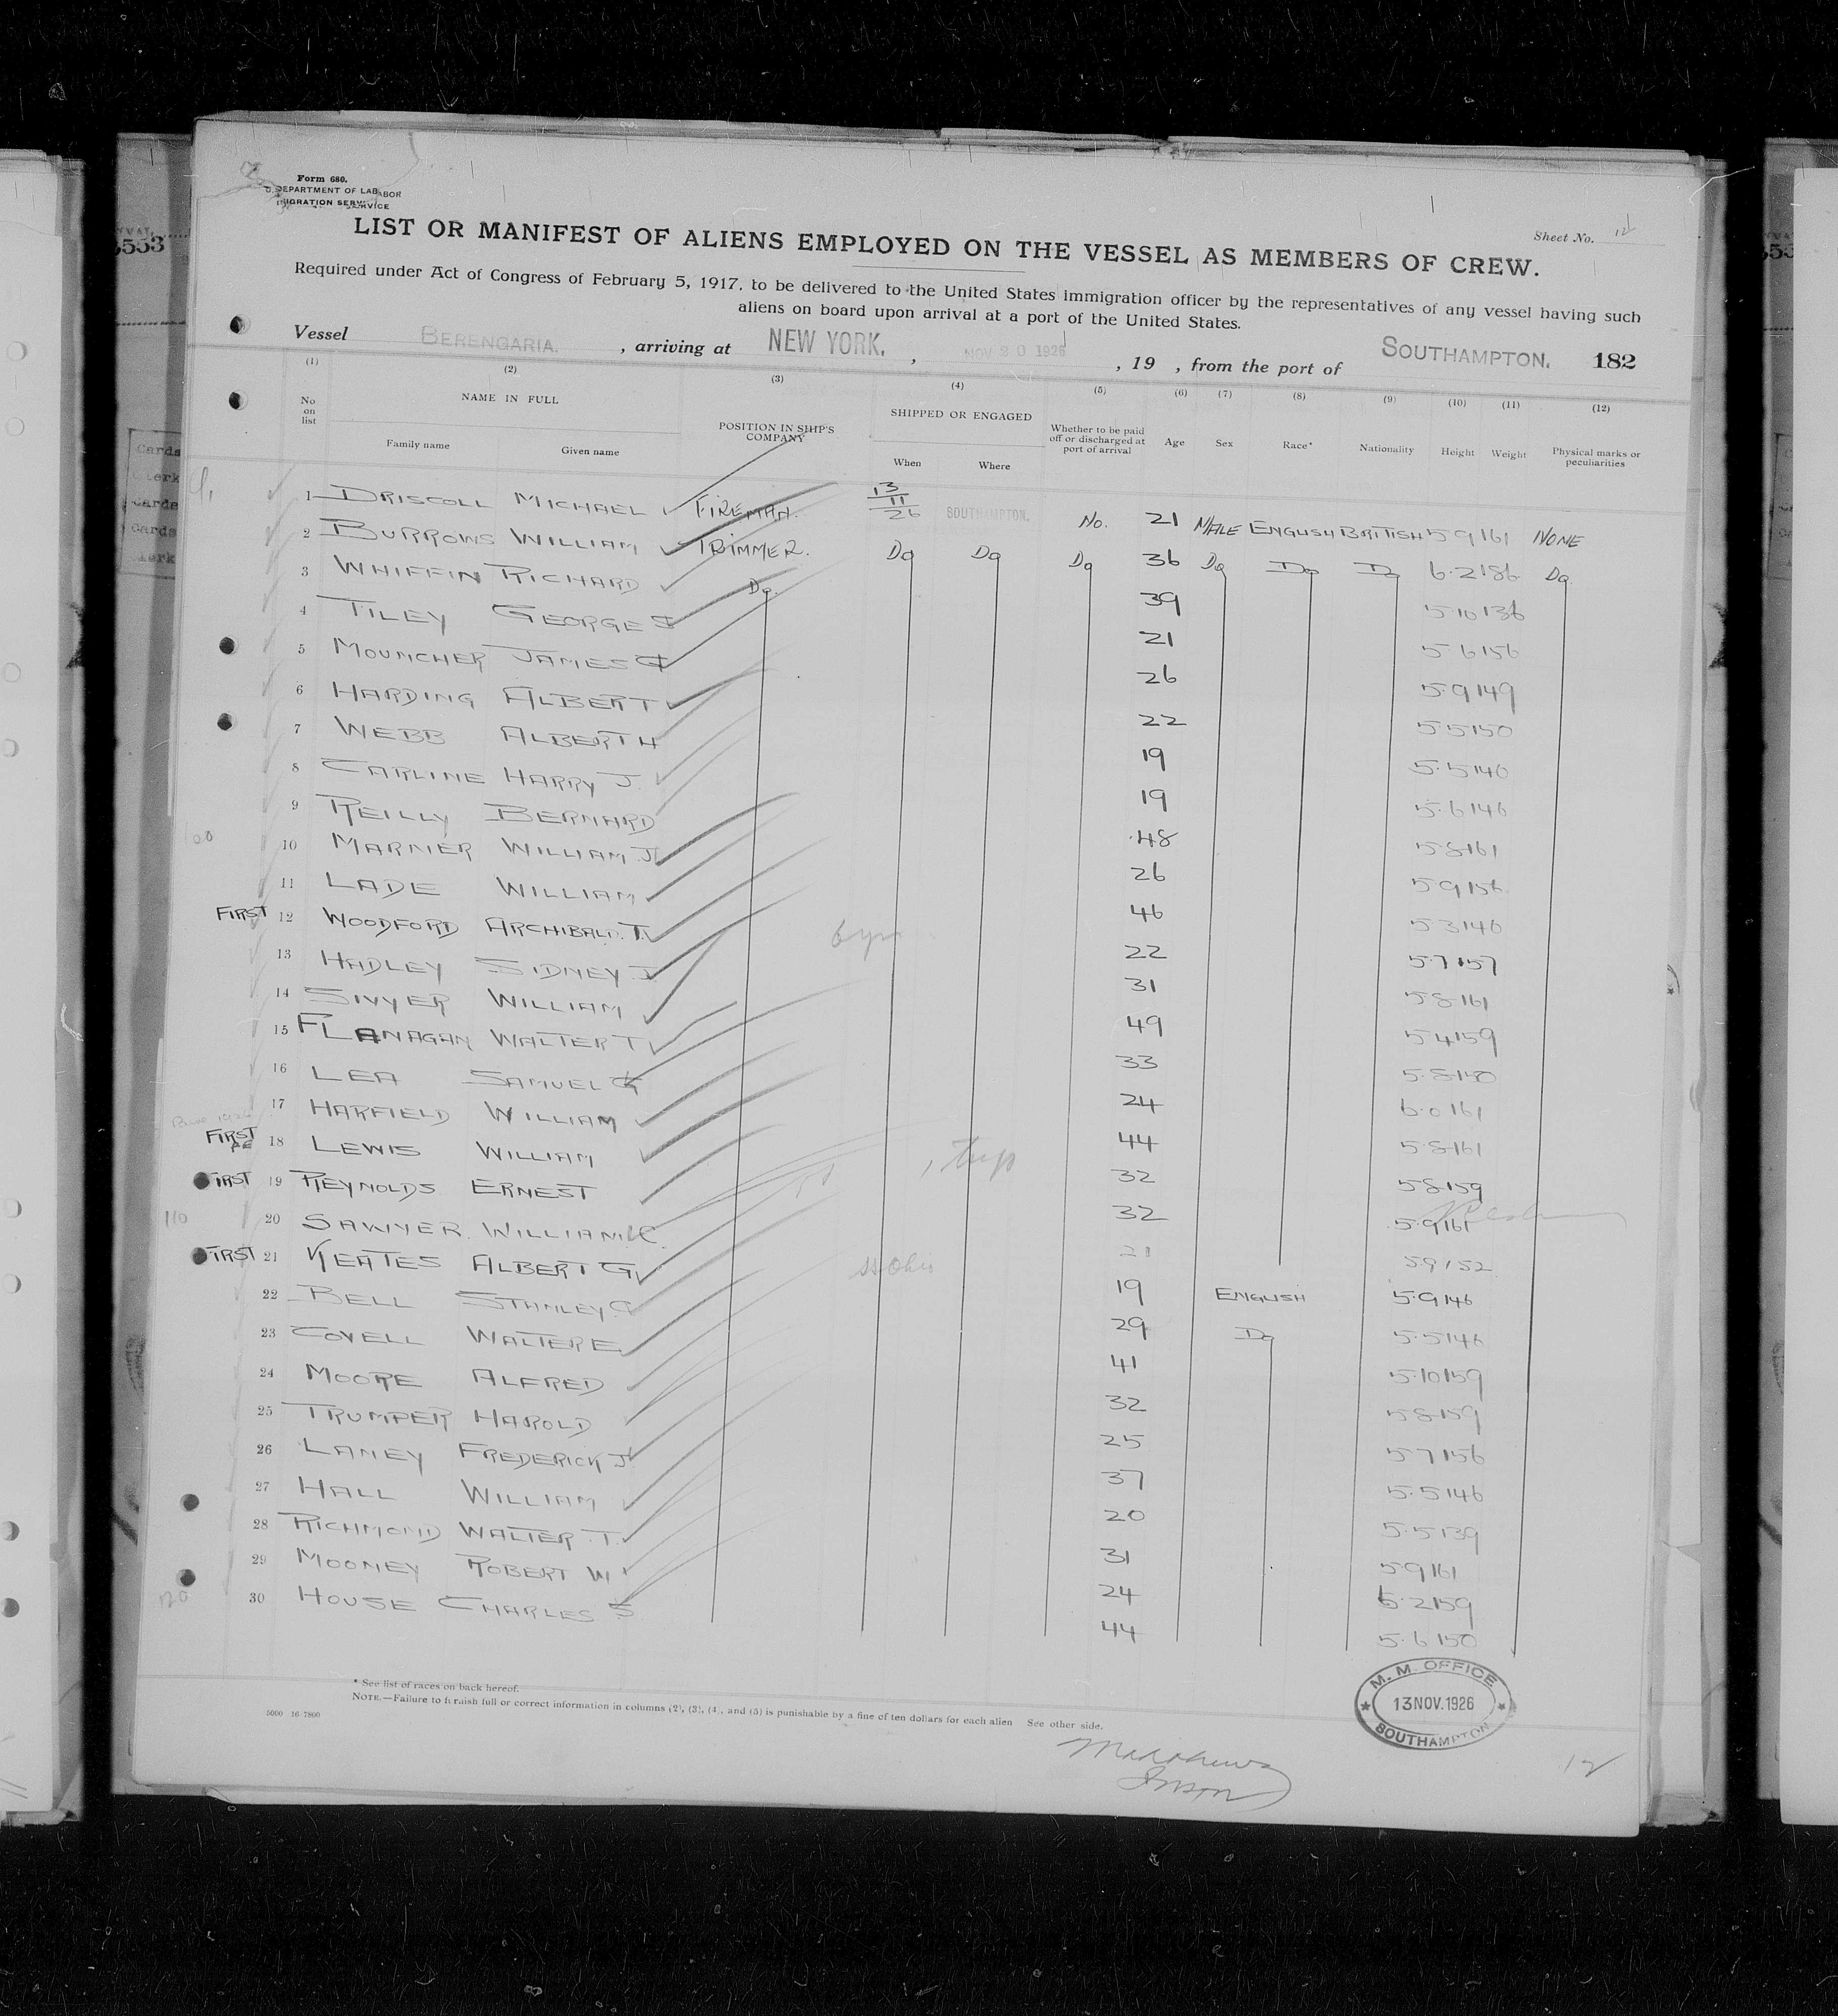 Form 680.
DEPARTMENT OF LABOR
IMMIGRATION SERVICE
Sheet No. 12
LIST OR MANIFEST OF ALIENS EMPLOYED ON THE VESSEL AS MEMBERS OF CREW.
Required under Act of Congress of February 5, 1917, to be delivered to the United States immigration officer by the representatives of any vessel having such
aliens on board upon arrival at a port of the United States.
Vessel BERENGARIA. , arriving at NEW YORK. , NOV 20 1926 , 19 , from the port of SOUTHAMPTON. 182
(1) (2) (3) (4) (5) (6) (7) (8) (9) (10) (11) (12)
No on list NAME IN FULL Family name Given name POSITION IN SHIP'S COMPANY SHIPPED OR ENGAGED When Where Whether to be paid off or discharged at port of arrival Age Sex Race* Nationality Height Weight Physical marks or peculiarities
1 DRISCOLL MICHAEL FIREMAN. 13/11/26 SOUTHAMPTON. No. 21 MALE ENGLISH BRITISH 5 9 161 NONE
2 BURROWS WILLIAM TRIMMER. Do Do Do 36 Do Do Do 6·2 186 Do
3 WHIFFIN RICHARD Do. 39 5·10 136
4 TILEY GEORGE S 21 5·6 156
5 MOUNCHER JAMES G 26 5·9 149
6 HARDING ALBERT 22 5·5 150
7 WEBB ALBERT H 19 5·5 140
8 CARLINE HARRY J. 19 5·6 146
9 REILLY BERNARD 48 5·8 161
10 MARNER WILLIAM J 26 5 9 156
11 LADE WILLIAM 46 5 3 146
FIRST 12 WOODFORD ARCHIBALD. T. 6 yrs 22 5·7 157
13 HADLEY SIDNEY J 31 5·8 161
14 SIVYER WILLIAM 49 5·4 159
15 FLANAGAN WALTER T 33 5·8 150
16 LEA SAMUEL G 24 6·0 161
17 HARFIELD WILLIAM 44 5·8 161
FIRST 18 LEWIS WILLIAM 32 5·8 159
FIRST 19 REYNOLDS ERNEST 32 5·9 161
110 20 SAWYER. WILLIAM C. 21 5 9 152
FIRST 21 KEATES ALBERT G 19 ENGLISH 5·9 146
22 BELL STANLEY G 29 Do 5·5 146
23 COVELL WALTER E 41 5·10 159
24 MOORE ALFRED 32 5·8 159
25 TRUMPER HAROLD 25 5·7 156
26 LANEY FREDERICK J 37 5·5 146
27 HALL WILLIAM 20 5·5 139
28 RICHMOND WALTER. T. 31 5·9 161
29 MOONEY ROBERT W 24 6·2 159
120 30 HOUSE CHARLES S 44 5·6 150
* See list of races on back hereof.
NOTE.—Failure to furnish full or correct information in columns (2), (3), (4), and (5) is punishable by a fine of ten dollars for each alien See other side.
5000 16 7800
M. M. OFFICE
13 NOV. 1926
SOUTHAMPTON
12